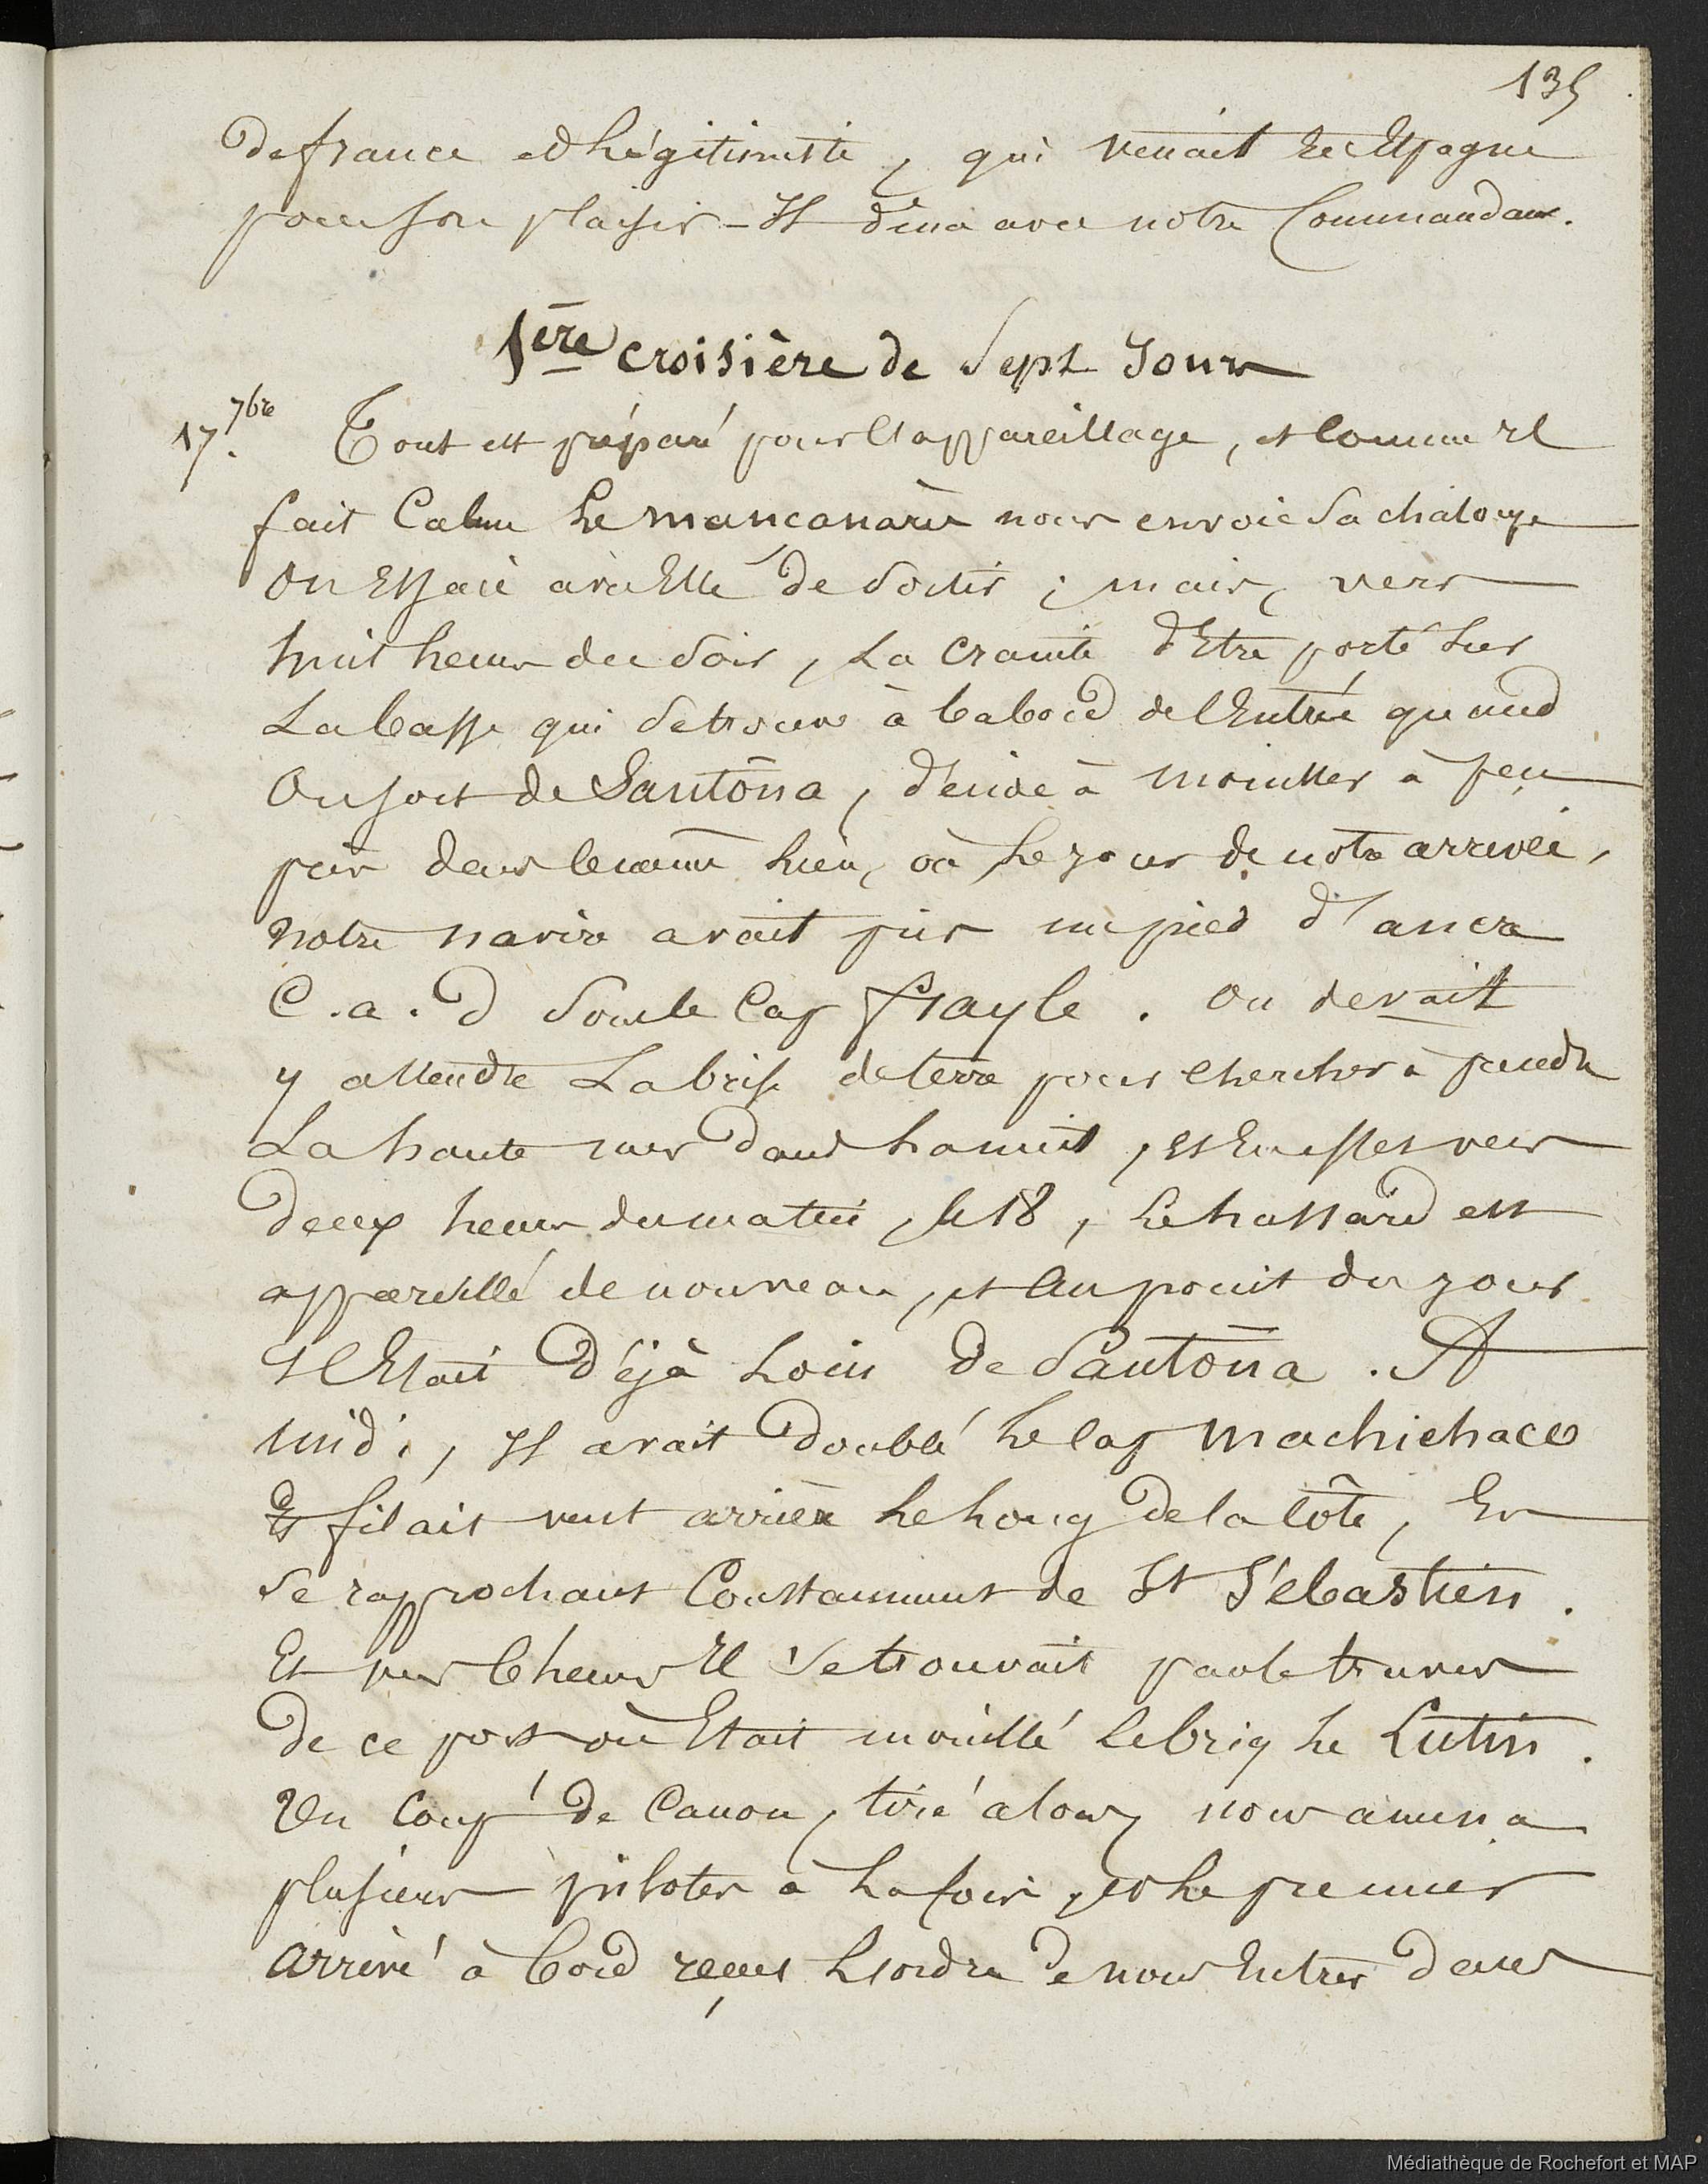 135
de france et Légitimiste, qui venait En Espagne
pour son plaisir - Il dina avec notre Commandant.
1ère croisière de Sept Jours
17. 7bre Tout est préparé pour l'appareillage, et Comme il
fait Calme Le mancanarès nous envoie Sa chaloupe
On Essaie avec Elle de Sortir ; mais, vers
huit heures du Soir, La crainte d'Etre porté Sur
La basse qui Se trouve à babord de l'Entrée quand
On sort de Santoña, décide à mouiller à peu
près dans le même lieu, où Le jour de notre arrivée,
notre navire avait pris un pied d'ancre
C.a.d Sous le Cap frayle. On devait
y attendre La brise de terre pour Chercher à prendre
La haute mer dans La nuit, et En effet vers
deux heures du matin, le 18, Le hassard est
appareillé de nouveau, et Au point du jour
Il Etait déjà Loin de Santoña. A
midi, Il avait doublé Le Cap machichaco
Et filait vent arrière Le Long de la Côte, En
Se rapprochant Constamment de St Sébastien.
Et vers 6 heures Il Se trouvait par le travers
de ce port où Etait mouillé le brig Le Lutin.
Un Coup de Canon, tiré alors, nous amena
plusieurs pilotes à La fois, et Le premier
arrivé à bord reçut L'ordre de nous Entrer dans
Médiathèque de Rochefort et MAP